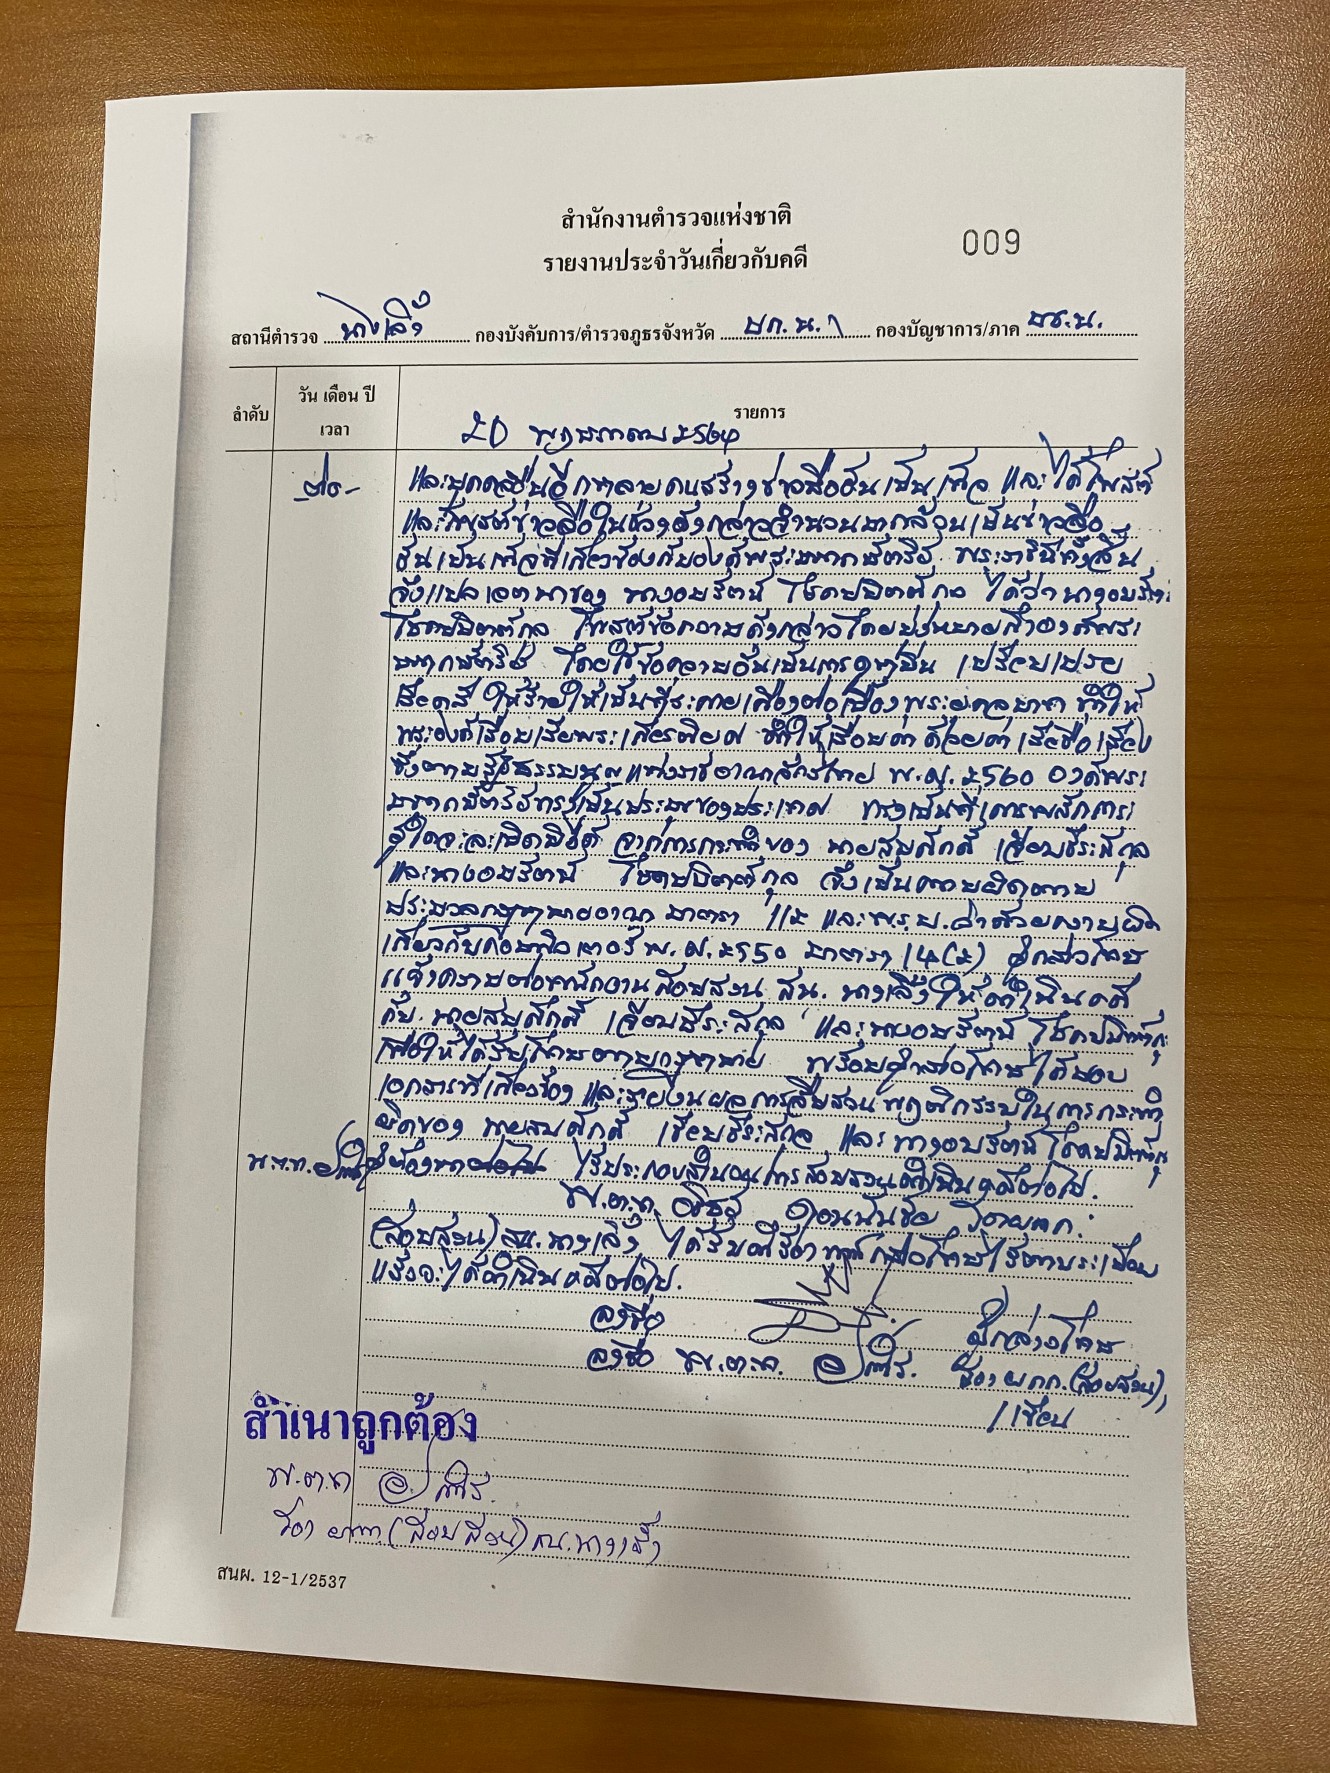 สำนักงานตำรวจแห่งชาติ
รายงานประจำวันเกี่ยวกับคดี
009
สถานีตำรวจ นางเลิ้ง กองบังคับการ/ตำรวจภูธรจังหวัด บก.น.1 กองบัญชาการ/ภาค บช.น.
ลำดับ
วัน เดือน ปี
เวลา
รายการ
20 พฤษภาคม 2564
-ต่อ-
และบุคคลอื่นอีกหลายคนสร้างข่าวลืออันเป็นเท็จ และได้โพสต์
และ ข่าวลือในช่วงดังกล่าวจำนวนมากล้วนเป็นข่าวลือ
อันเป็นเท็จที่เกี่ยวข้องกับองค์พระมหากษัตริย์ พระราชินีทั้งสิ้น
จึงแปลเจตนาของ นางอมรัตน์ โชคปมิตต์กุล ได้ว่านางอมรัตน์
โชคปมิตต์กุล โพสต์ข้อความดังกล่าวโดยมุ่งหมายถึงองค์พระ
มหากษัตริย์ โดยใช้ข้อความอันเป็นการดูหมิ่น เปรียบเปรย
เสียดสี ให้ร้ายให้เป็นที่ระคายเคืองต่อเบื้องพระยุคลบาท ทำให้
พระองค์เสื่อมเสียพระเกียรติยศ ทำให้เสื่อมค่า ด้อยค่า เสียชื่อเสียง
ซึ่งตามรัฐธรรมนูญแห่งราชอาณาจักรไทย พ.ศ. 2560 องค์พระ
มหากษัตริย์ทรงเป็นประมุขของประเทศ ทรงเป็นที่เคารพสักการะ
ผู้ใดจะละเมิดมิได้ จากการกระทำของ นายสมศักดิ์ เจียมธีรสกุล
และนางอมรัตน์ โชคปมิตต์กุล จึงเป็นความผิดตาม
ประมวลกฎหมายอาญา มาตรา 112 และ พ.ร.บ.ว่าด้วยความผิด
เกี่ยวกับคอมพิวเตอร์ พ.ศ. 2550 มาตรา 14(2) ผู้กล่าวโทษ
แจ้งความต่อพนักงานสอบสวน สน. นางเลิ้งให้ดำเนินคดี
กับ นายสมศักดิ์ เจียมธีรสกุล และนางอมรัตน์ โชคปมิตต์กุล
เพื่อให้ได้รับโทษตามกฎหมาย พร้อมผู้กล่าวโทษได้มอบ
เอกสารที่เกี่ยวข้อง และรายงานผลการสืบสวนพฤติกรรมในการกระทำ
ผิดของ นายสมศักดิ์ เจียมธีรสกุล และ นางอมรัตน์ โชคปมิตต์กุล
พ.ต.ท. ไว้ประกอบสำนวนการสอบสวนดำเนินคดีต่อไป.
พ.ต.ท. รอง ผกก.
(สอบสวน) สน.นางเลิ้ง ได้รับคำร้องทุกข์กล่าวโทษไว้ตามระเบียบ
แล้วจะได้ดำเนินคดีต่อไป.
ลงชื่อ ผู้กล่าวโทษ
ลงชื่อ พ.ต.ท. รอง ผกก.(สอบสวน)
/เขียน
สำเนาถูกต้อง
พ.ต.ท.
รอง ผกก.(สอบสวน) สน.นางเลิ้ง
สนผ. 12-1/2537